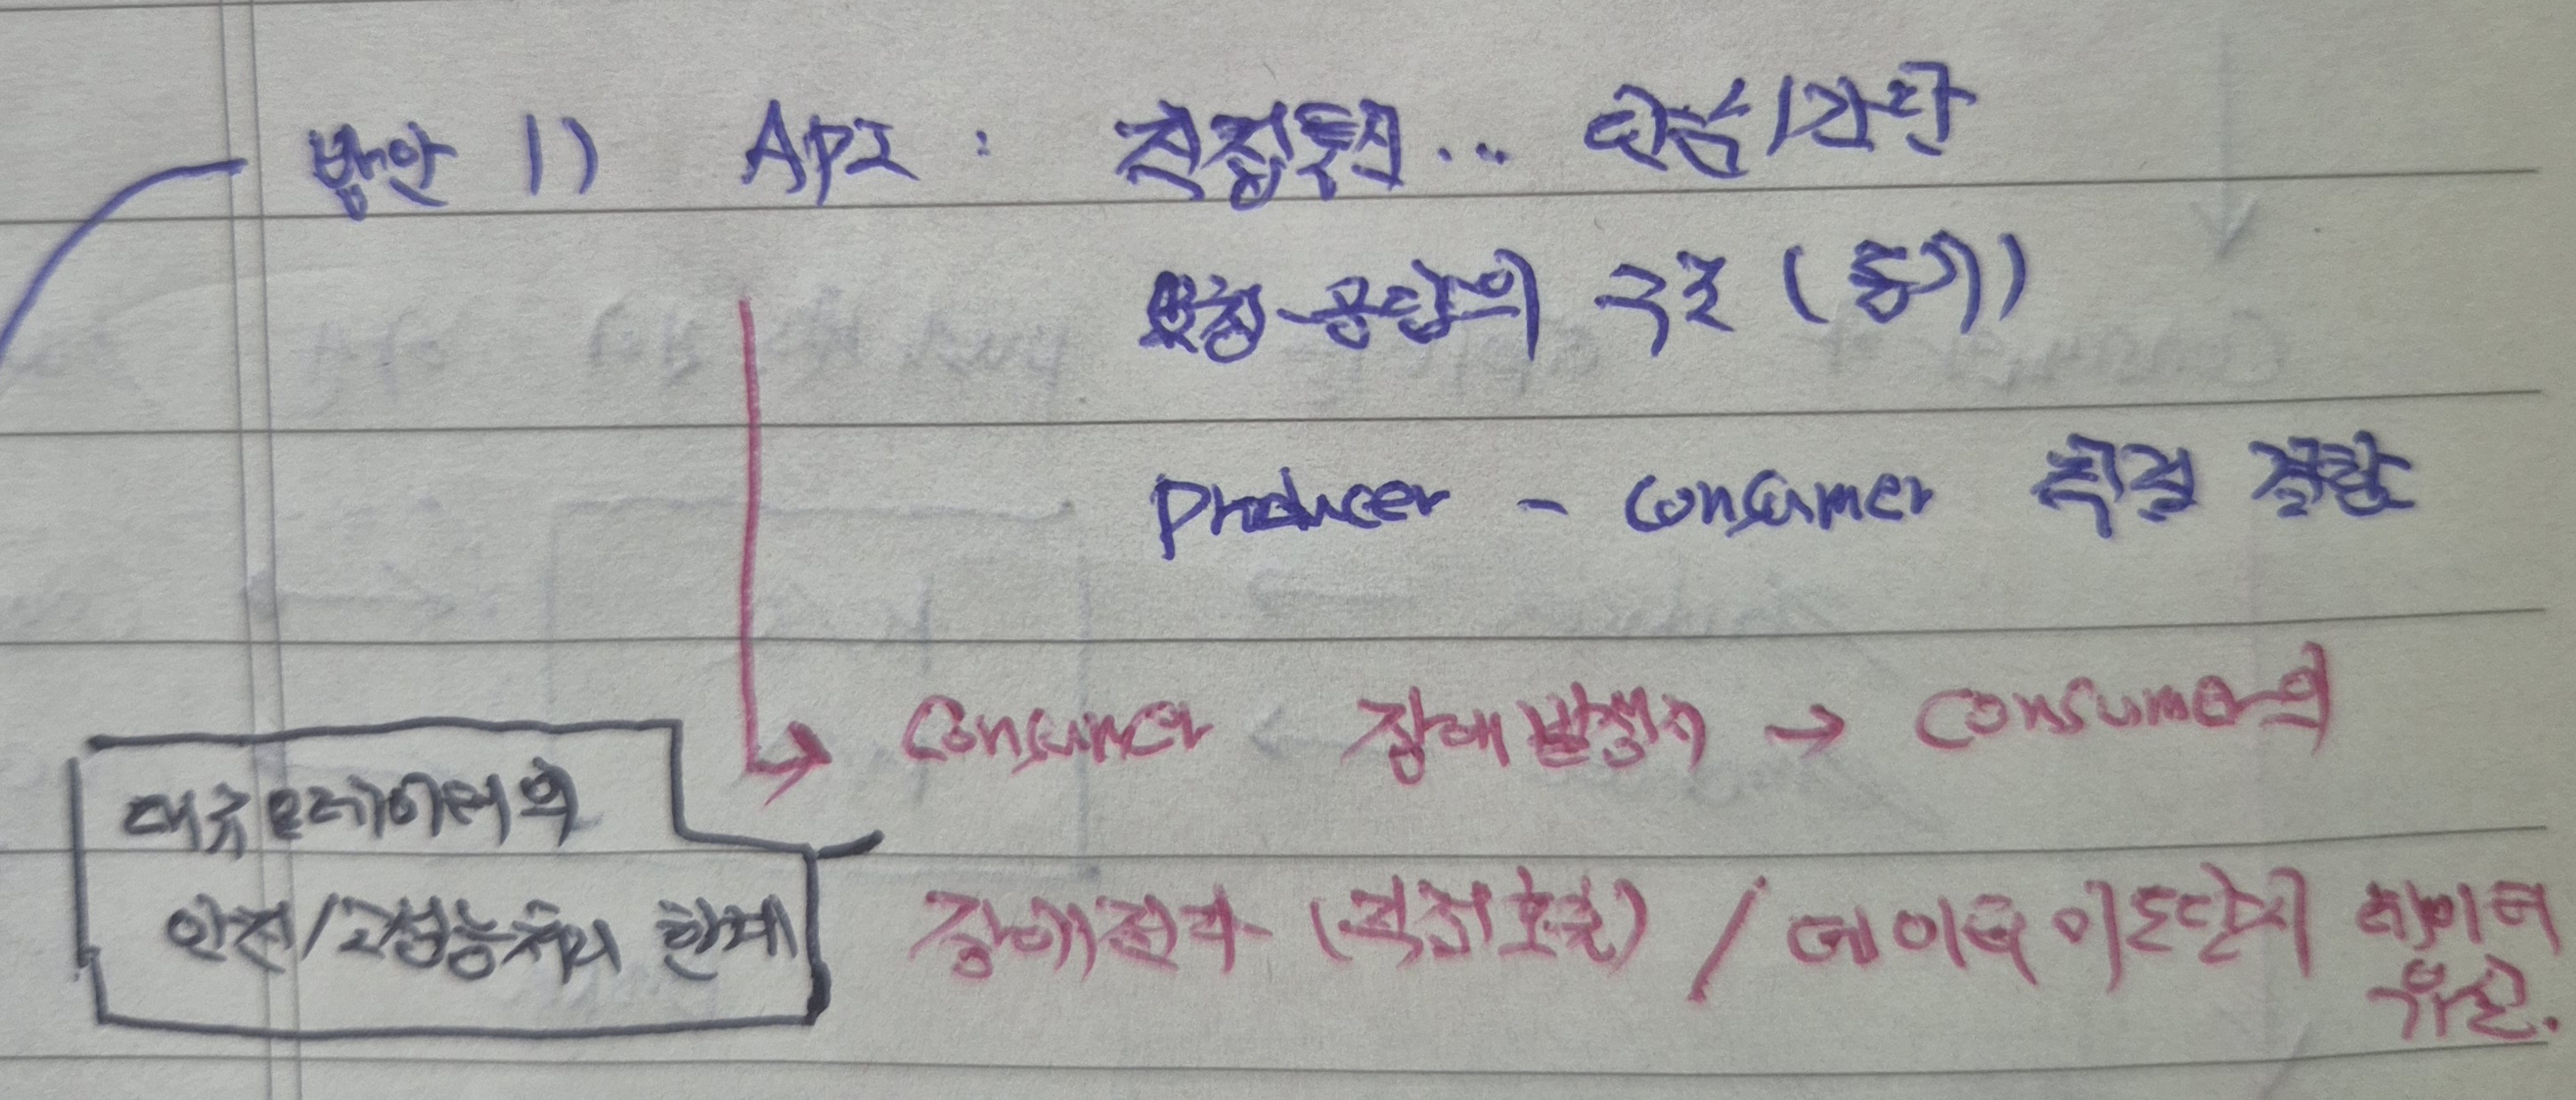 방안 1) API : 직접통신... 단순/간단
요청-응답의 구조 (동기)
producer - consumer 직접 결합
Consumer 장애발생시 → Consumer의
장애전파 (직접호출) / 데이터 이동단계 데이터
유실.
대규모데이터의
안전/고성능처리 한계